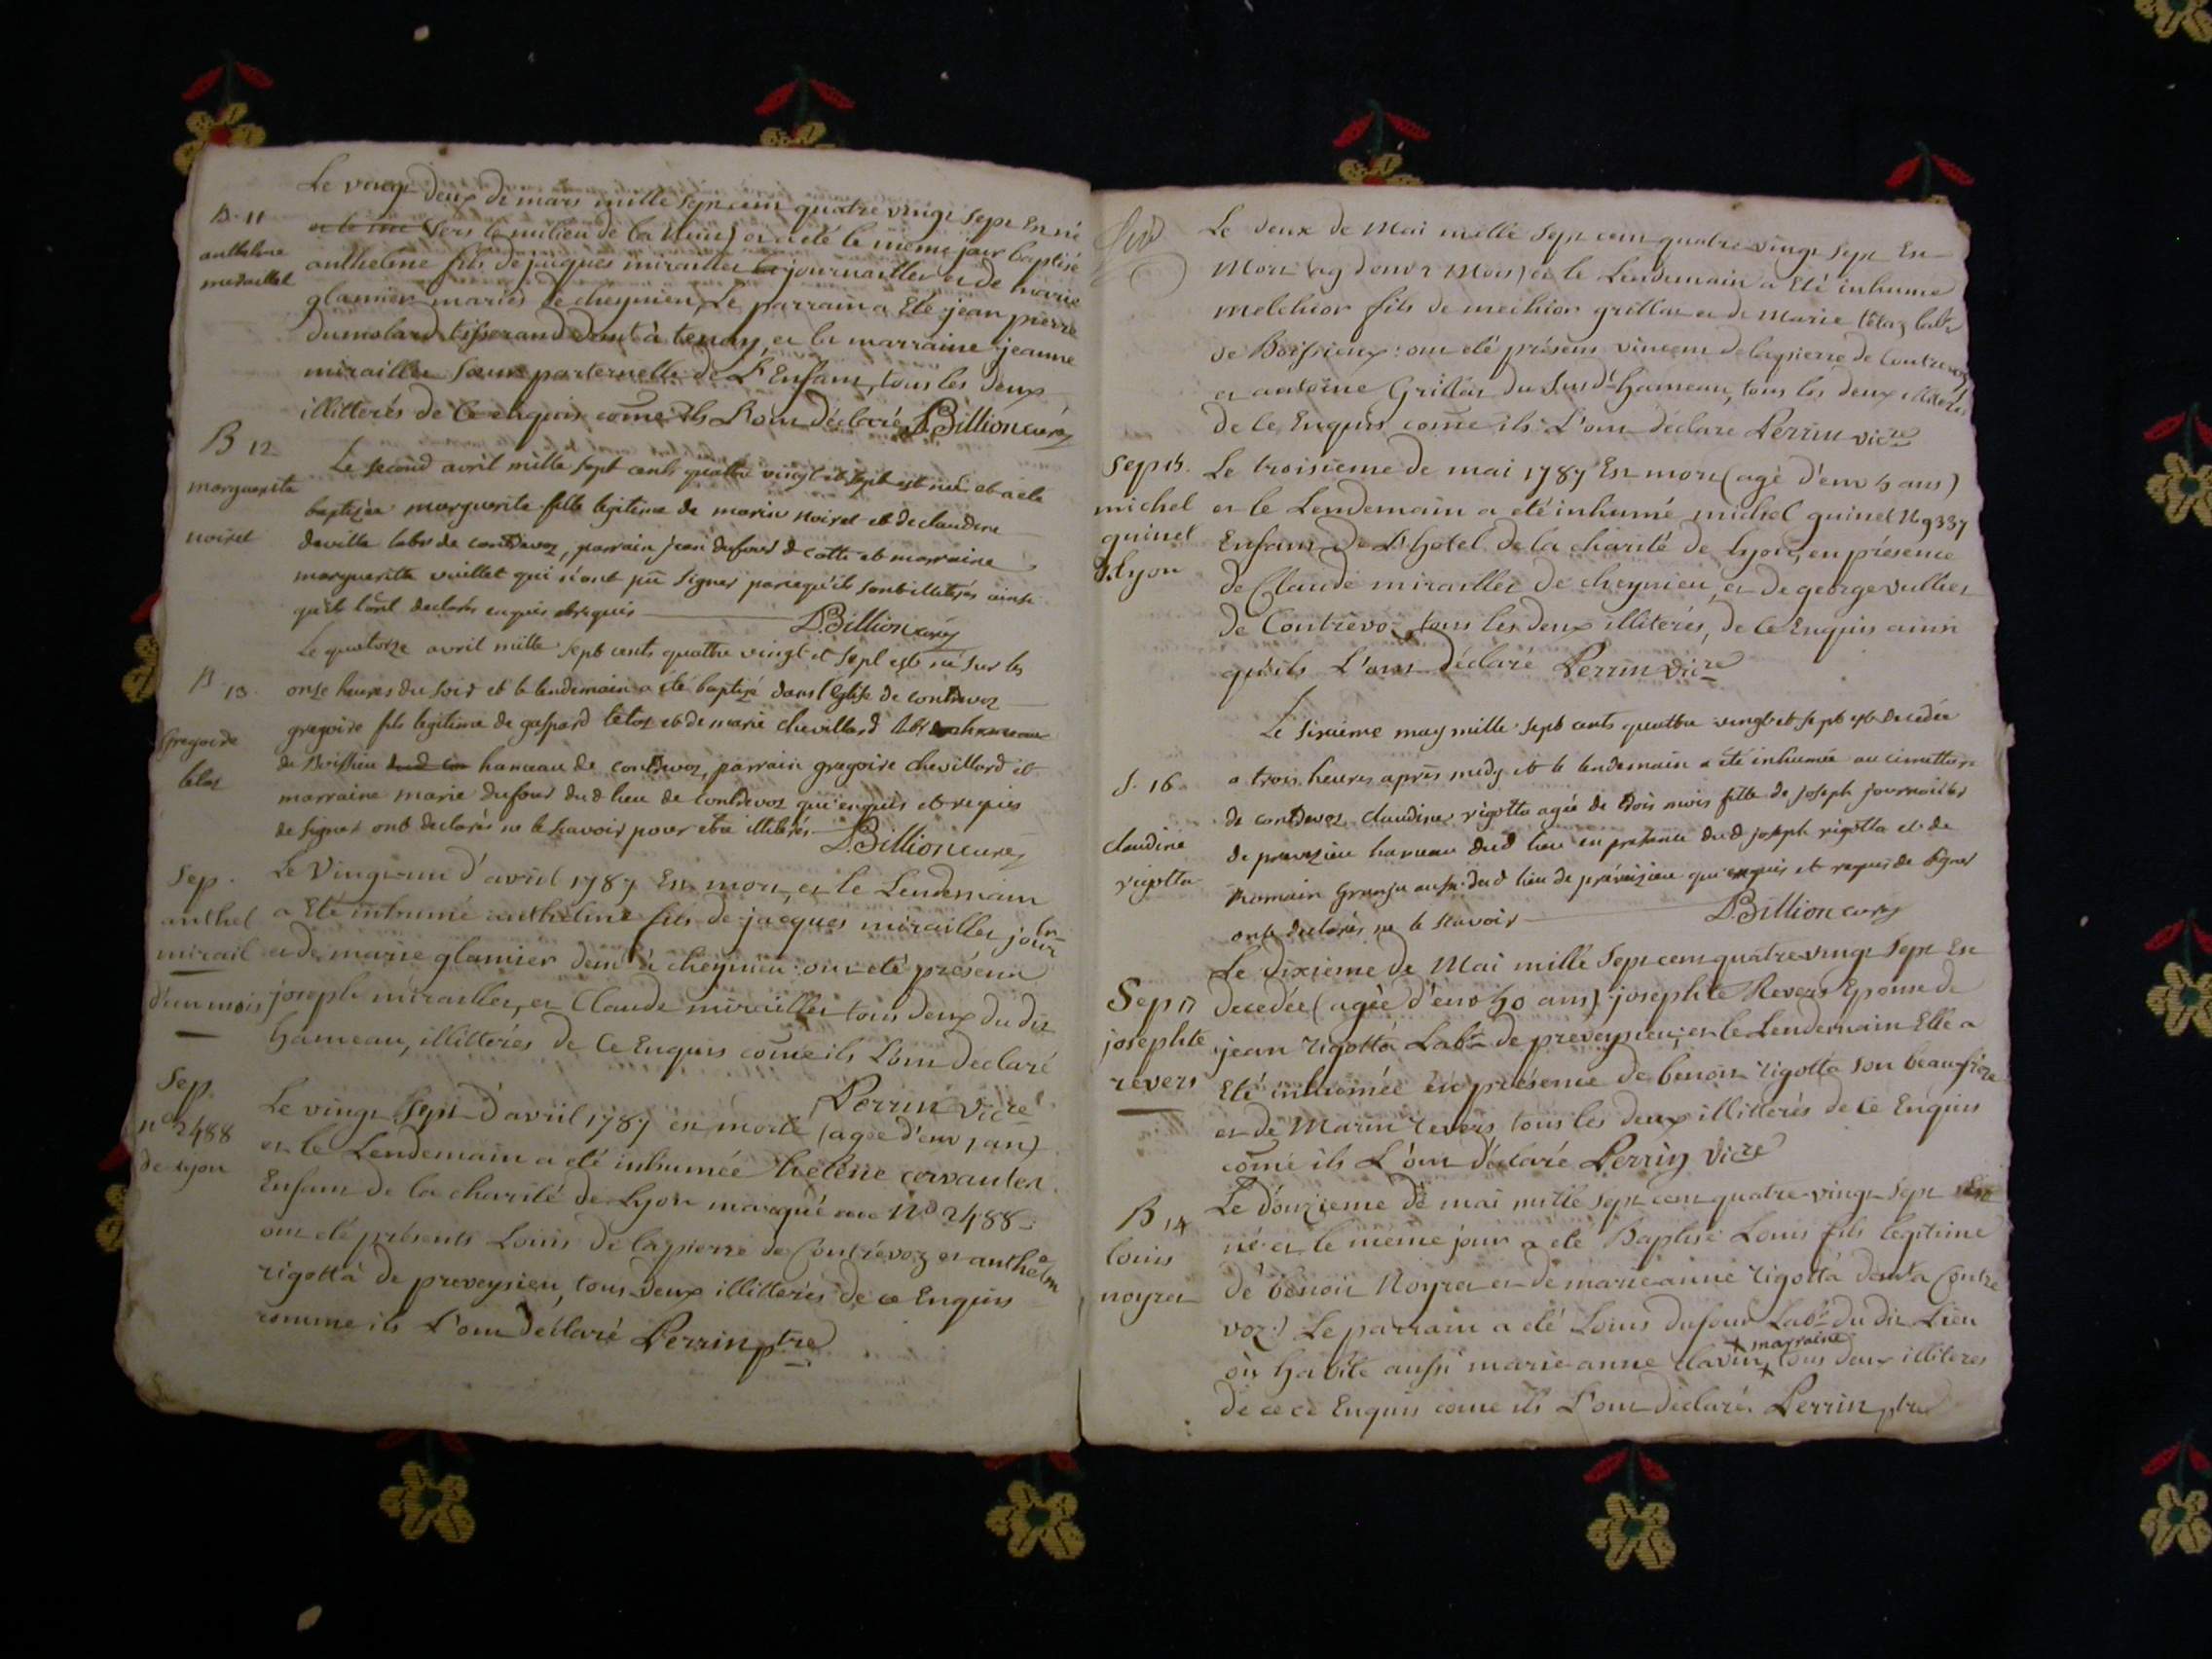 Le vingt deux de mars mille sept cent quatre vingt sept Est né
B. 11
et le me (vers le milieu de la nuit) et a été le meme jour baptisé
anthelme
miraillet
anthelme fils de jacques miraillet la journaillier et de marie
glamier mariés de cheynieu, Le parrain a Eté jean pierre
dumolard tisserand demt à tenay, et la marraine jeanne
miraillet sœur parternelle de L'Enfant, tous les deux
illittérés de Ce enquis côme ils L'ont déclaré D.Billion curé
B 12
marguerite
noiret
Le second avril mille sept cents quattre vingt et sept est née et a été
baptizée marguerite fille legitime de marin noiret et de claudine
deville labr de contrevoz, parrain jean dufour de cotte et marraine
marguerite vuillet qui n'ont pû signer parcequ'ils sont illiterés ainsi
qu'ils l'ont declarés enquis et requis D.Billion curé
B. 13.
gregoire
tetaz
Le quatorze avril mille sept cents quattre vingt et sept est né sur les
onze heures du soir et le lendemain a été baptizé dans l'Eglise de contrevoz
gregoire fils legitime de gaspard tetaz et de marie chevillard labr
de Boissieu hameau de contrevoz, parrain gregoire chevillard et
marraine marie dufour dud lieu de contrevoz qui enquis et requis
de signer ont declarés ne le scavoir pour etre illiterés D.Billion curé
Sep.
anthel
mirail
d'un mois
Le Vingt-un d'avril 1787 Est mort, et le Lendemain
a Eté inhumé anthelme fils de jacques miraillet jourlr
et de marie glamier demt à cheynieu: ont été présents
joseph miraillet, et Claude miraillet tous deux du dit
hameau, illittérés de Ce Enquis côme ils L'ont declaré
Perrin vicre
Sep
no 2488
de Lyon
Le vingt sept d'avril 1787 est morte (agée d'env 1 an)
et le Lendemain a été inhumée helene cervantes
Enfant de la charité de Lyon marqué No 2488:
ont été présents Louis de lapierre de Contrévoz et anthelme
rigottà de preveysieu, tous deux illittérés de ce Enquis
comme ils L'ont déclaré Perrin ptre
Le deux de Mai mille sept cent quatre vingt sept Est
Mort (ag denv 2 Mois) et le Lendemain a Eté inhumé
melchior fils de mechior grillat et de Marie têtaz labr
de Boissieux: ont été présens vincent de lapierre de Contrevoz
et antoine Grillat du susdt hameau, tous les deux illiterés
de Ce Enquis côme ils L'ont déclaré Perrin vicre
Sep 15.
michel
quinet
d.Lyon
Le troisieme de mai 1787 Est mort (agé d'env 5 ans)
et le Lendemain a été inhumé michel quinet No 9337
Enfant de L'hotel de la charité de Lyon, en présence
de Claude miraillet de cheynieu, et de george vulliet
de Contrevoz, tous les deux illitérés, de Ce Enquis ainsi
qu'ils L'ont déclaré Perrin vicre
S. 16
claudine
rigotta
Le sixieme may mille sept cents quattre vingt et sept est decedée
a trois heures après midy et le lendemain a été inhumée au cimettiere
de contrevoz claudine rigotta agée de trois mois fille de joseph journailier
de prevezieu hameau dud lieu en presence dud joseph rigotta et de
Romain Granju aussi dud lieu de prévézieu qui enquis et requis de signer
ont declarés ne le scavoir D.Billion curé
Sep 17
josephte
revers
Le dixieme de Mai mille sept cent quatre vingt sept Est
decedée (agée d'env 40 ans) josephte Revers Epouse de
jean rigottà Labr de preveysieu; et le Lendemain Elle a
Eté inhumée en présence de benoit rigotta son beaufrere
et de Marin revers tous les deux illittérés de Ce Enquis
côme ils L'ont déclaré Perrin vicre
B 14
louis
noyret
Le douzieme de mai mille sept cent quatre-vingt sept Est
né et le même jour a eté Baptisé Louis fils légitime
de benoit Noyret et de marie anne rigottà demt à Contre
voz.) Le parrain a été Louis dufour Labr du dit Lieu
où habite aussi marie anne clavin + marraine, tous deux illitéres
de ce ce Enquis côme ils L'ont déclaré. Perrin ptre